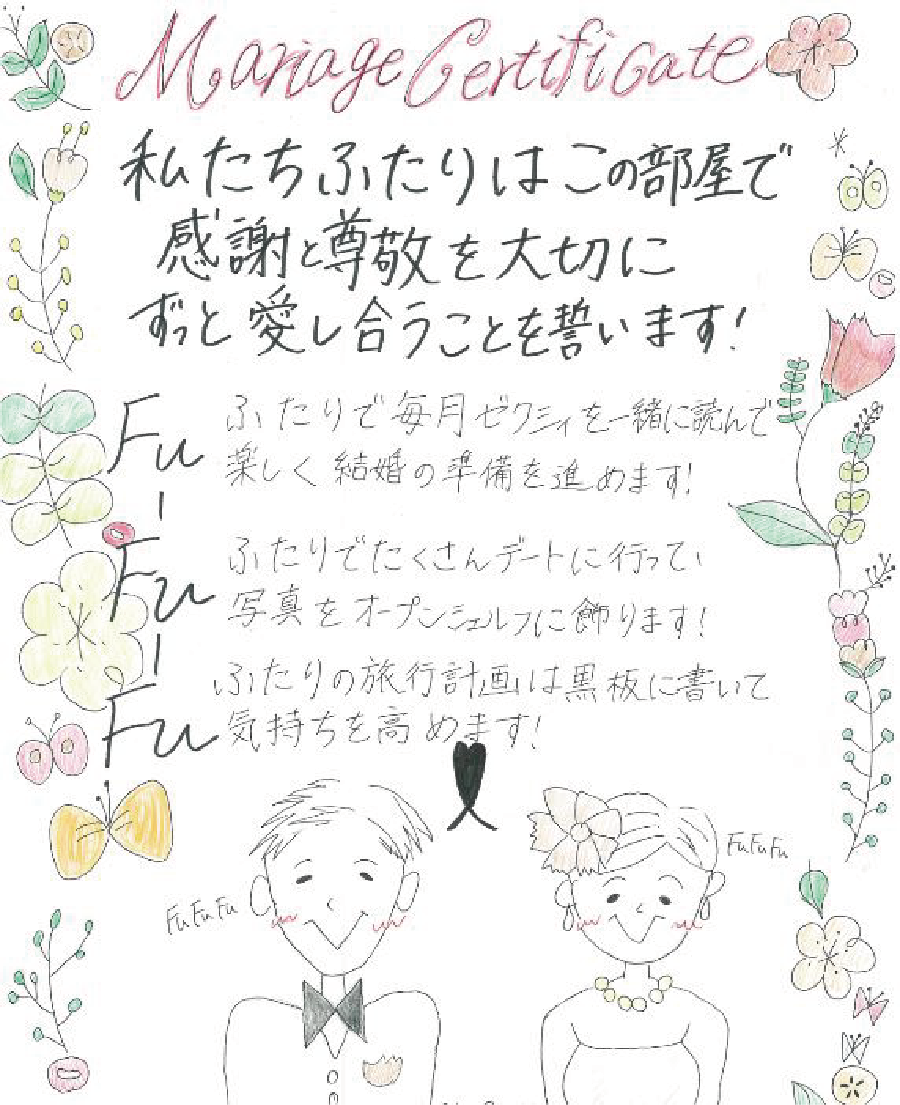 Mariage Certificate
私たちふたりはこの部屋で
感謝と尊敬を大切に
ずっと愛し合うことを誓います!
Fu
ふたりで毎月ゼクシィを一緒に読んで
楽しく結婚の準備を進めます!
Fu
ふたりでたくさんデートに行って、
写真をオープンシェルフに飾ります!
Fu
ふたりの旅行計画は黒板に書いて
気持ちを高めます!
FuFuFu
FuFuFu